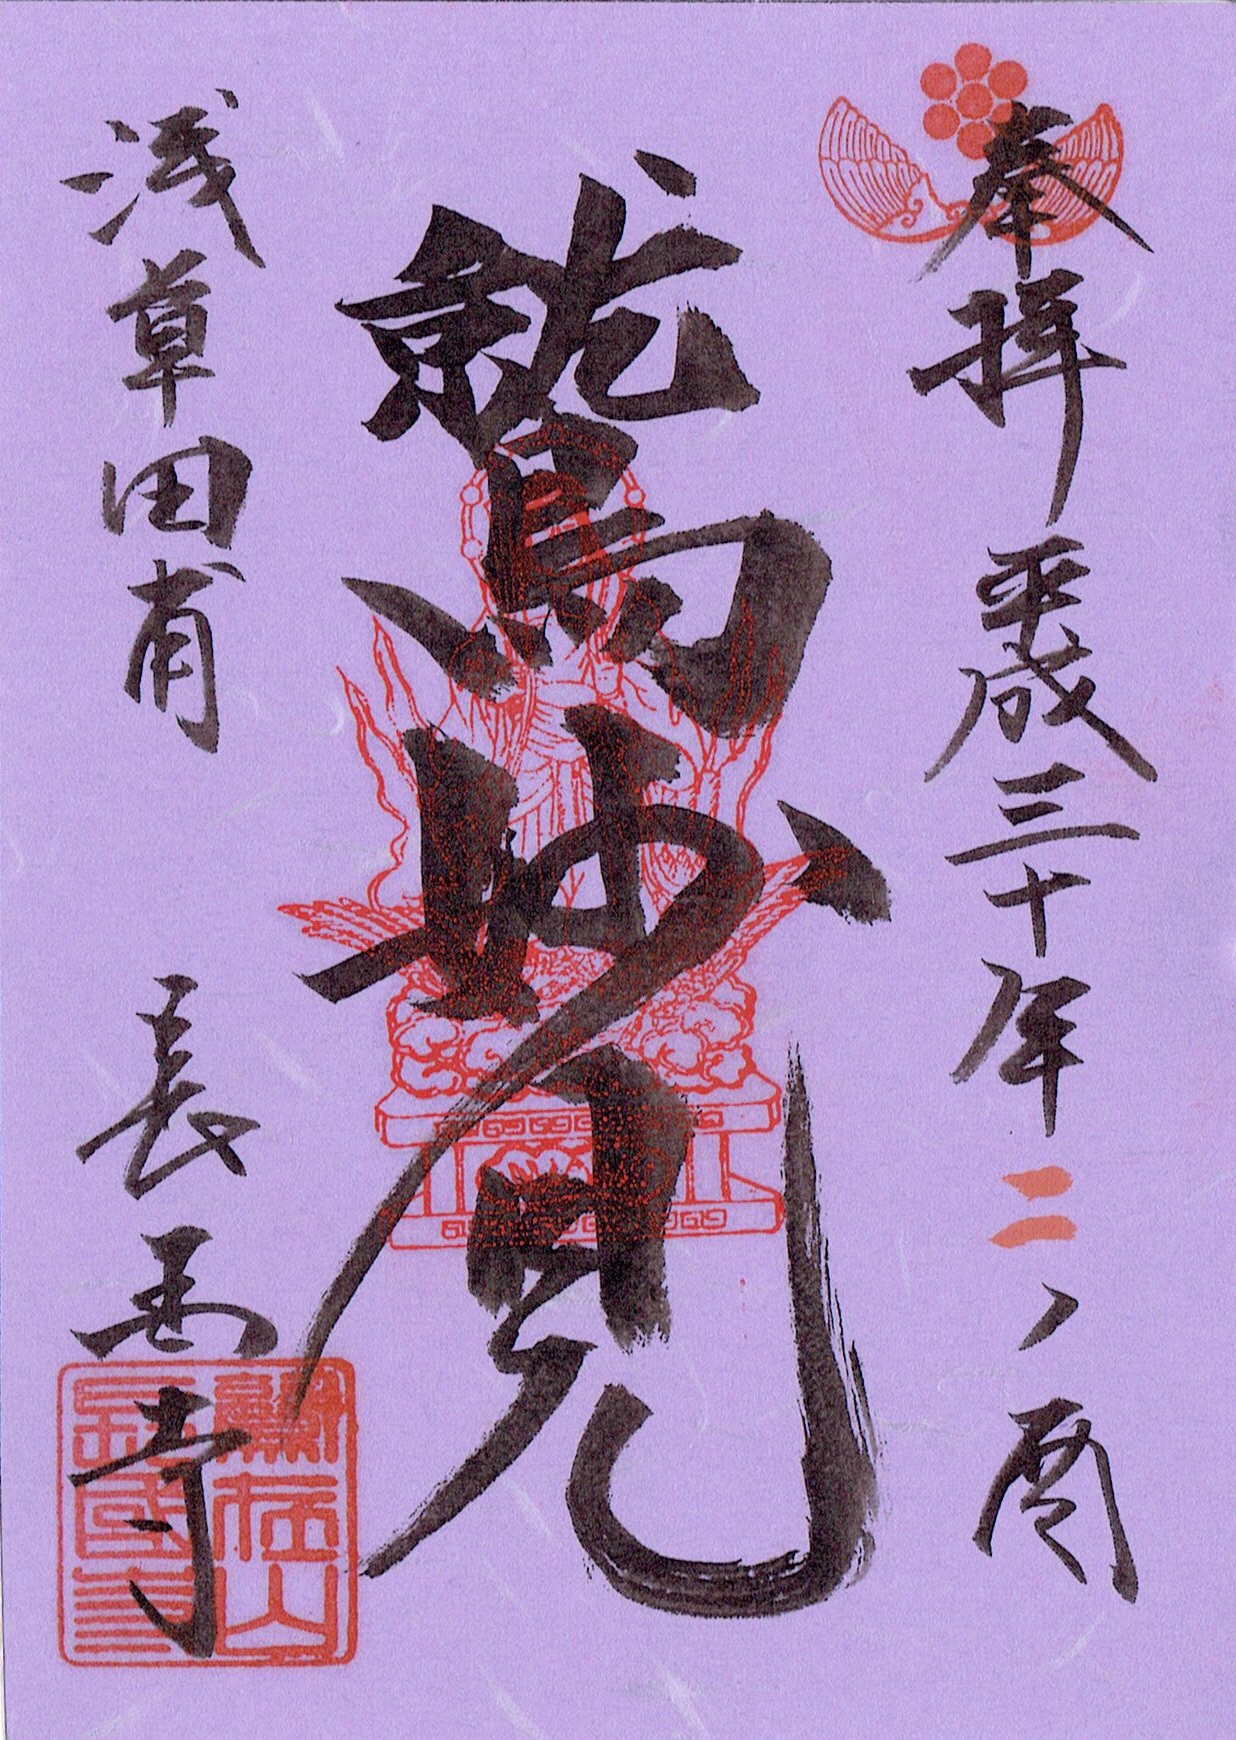 奉拝 平成三十年 二ノ酉
鷲妙見
浅草田甫 長國寺
鷲在山
長國寺